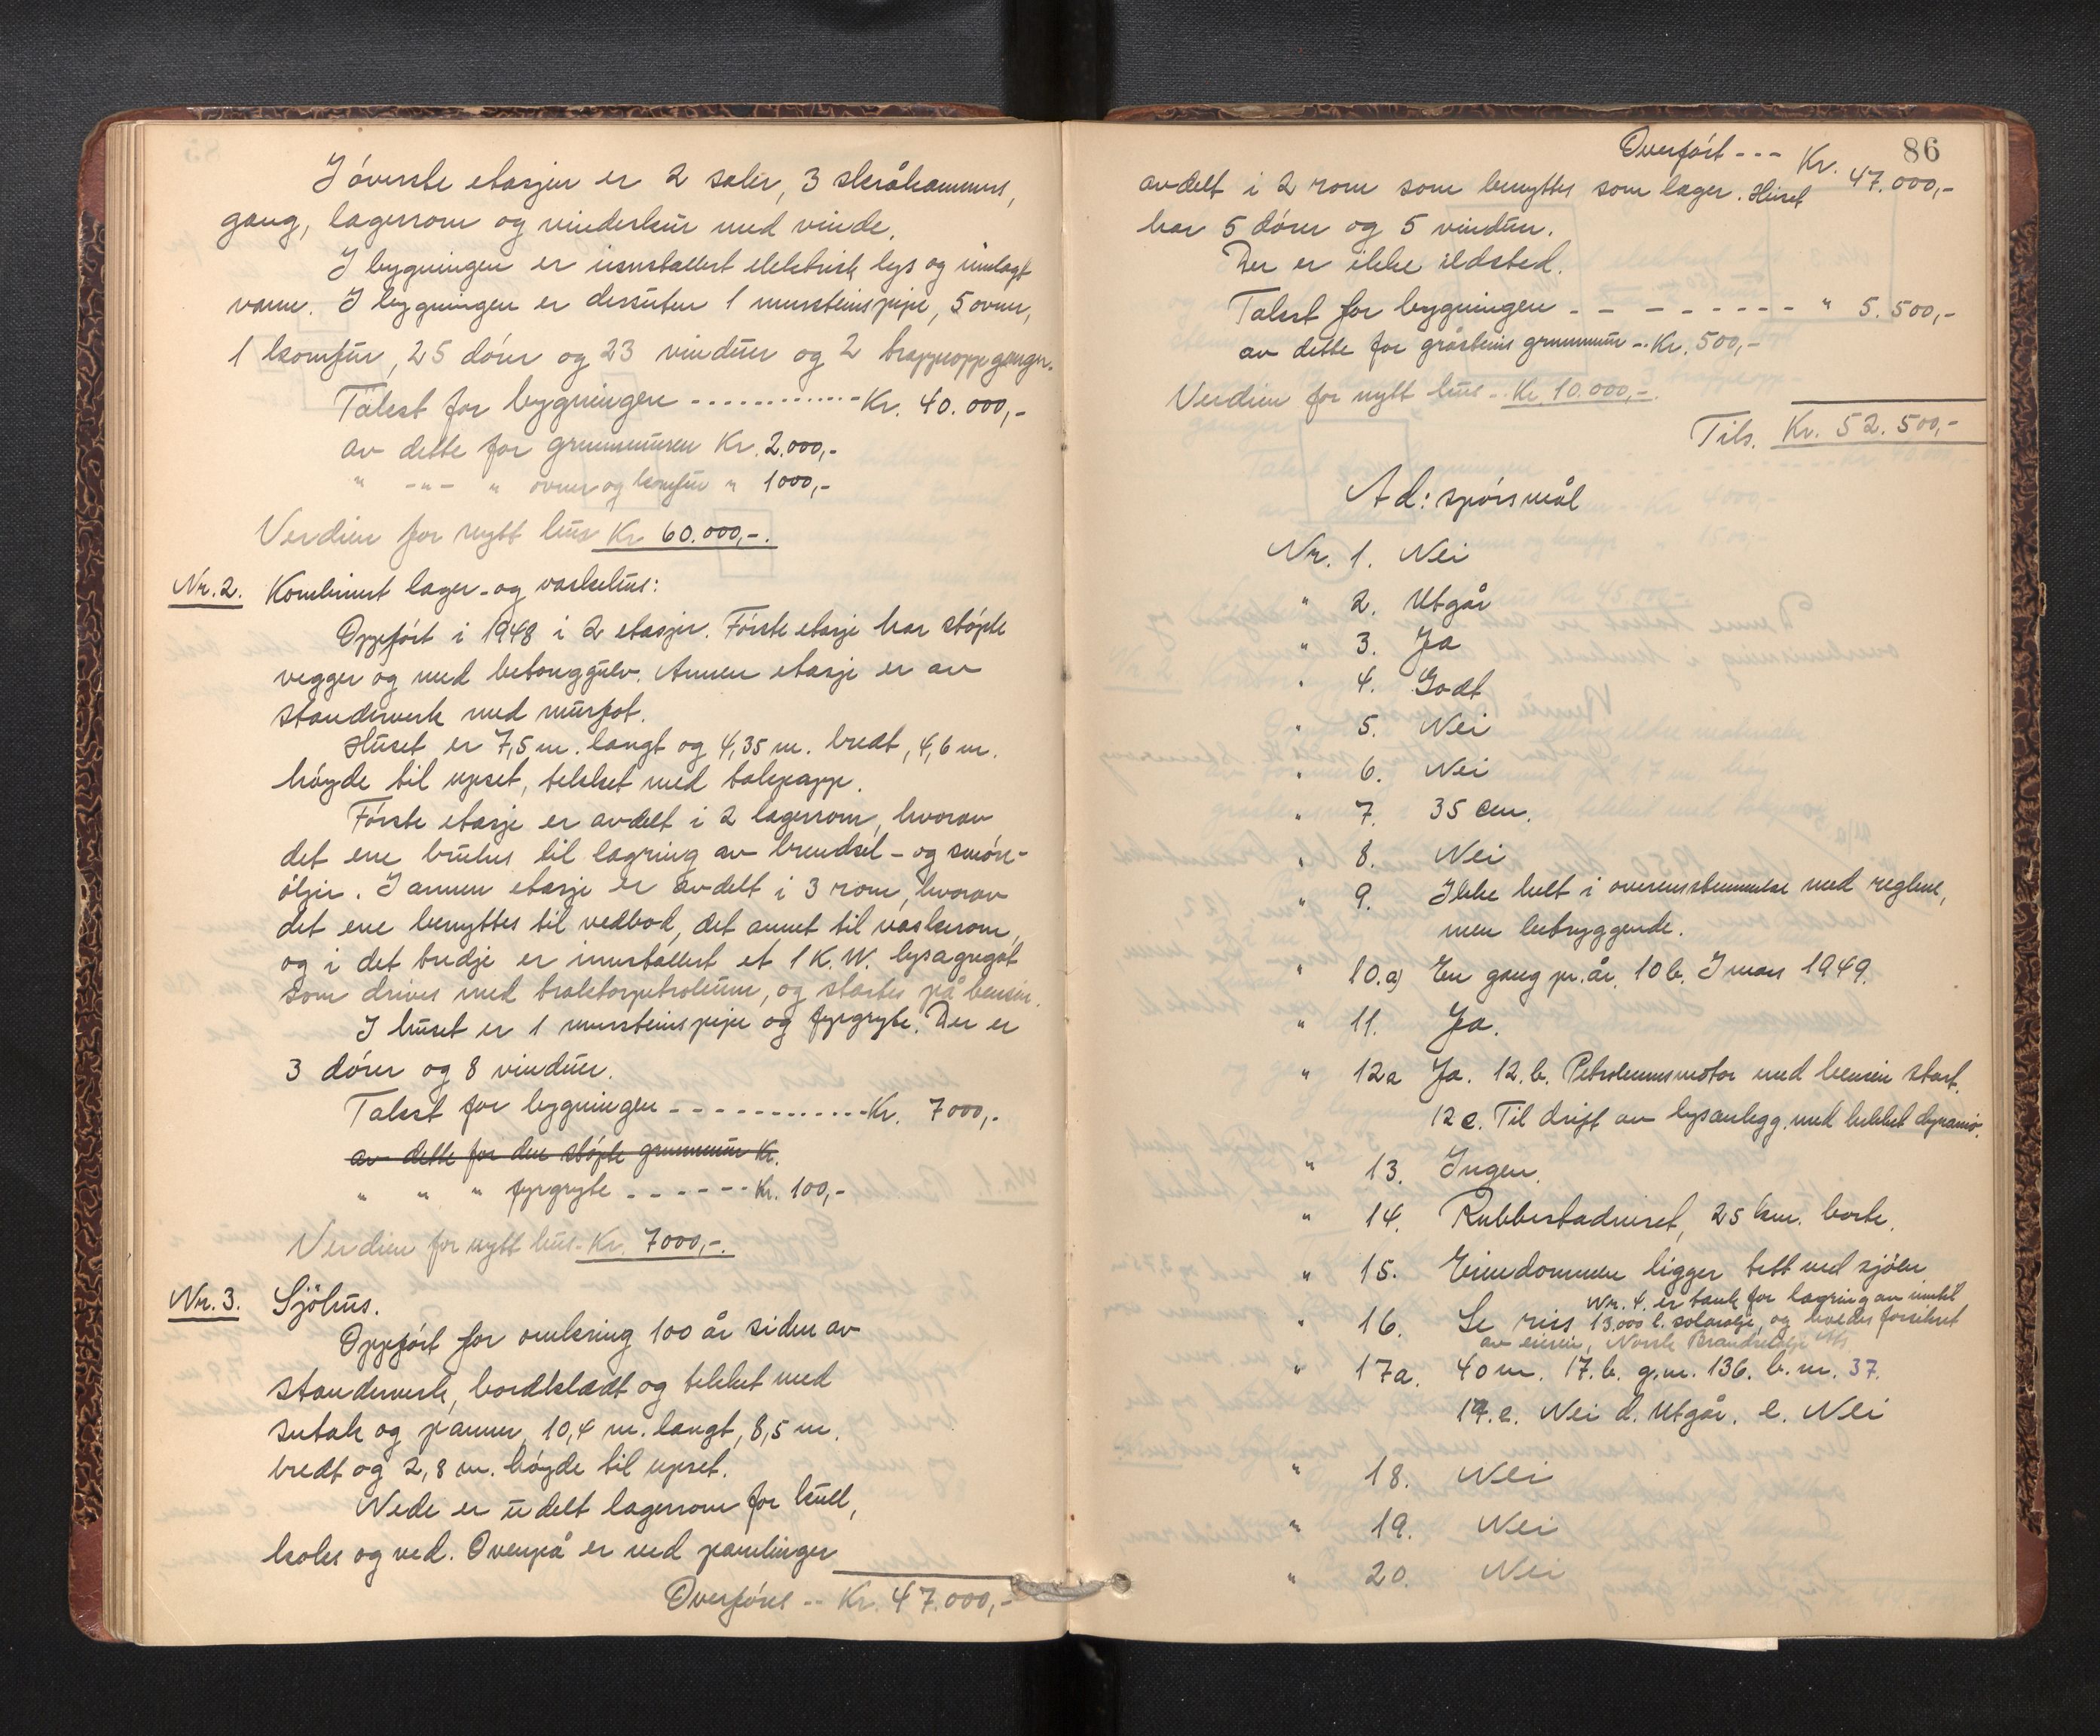 I överste etasjen er 2 saler, 3 skråkammers,
gang, lagerrom og vinderskur med vinde.
I bygningen er innstallert elektrisk lys og innlagt
vann. I bygningen er dessuten 1 mursteinspipe, 5 ovner,
1 komfur, 25 dörer og 23 vinduer og 2 trappeoppganger.
Takst for bygningen ------------ Kr. 40.000,-
av dette for grunnmuren Kr. 2.000,-
" -"- " ovner og komfur " 1000,-
Verdien for nytt hus Kr 60.000,-.
Nr. 2. Kombinert lager- og vaskehus:
Oppfört i 1948 i 2 etasjer. Förste etasje har stöpte
vegger og med betonggulv. Annen etasje er av
standerverk med murfot.
Huset er 7,5 m. langt og 4,35 m. bredt, 4,6 m.
höyde til upset, tekket med takpapp.
Förste etasje er avdelt i 2 lagerrom, hvorav
det ene brukes til lagring av brendsel- og smöre-
öljer. I annen etasje er avdelt i 3 rom, hvorav
det ene benyttes til vedbod, det annet til vaskerom,
og i det tredje er innstallert et 1 K.W. lysagregat
som drives med traktorpetroleum, og startes på bensin.
I huset er 1 mursteinspipe og fyrgryte. Der er
3 dörer og 8 vinduer.
Takst for bygningen ------------ Kr. 7000,-
av dette for den stöpte grunnmur Kr.
" " " fyrgryte ------ Kr. 100,-
Verdien for nytt hus - Kr. 7000,-.
Nr. 3. Sjöhus.
Oppfört for omkring 100 år siden av
standerverk, bordkledt og tekket med
sutak og panner, 10,4 m. langt, 8,5 m.
bredt og 2,8 m. höyde til upset.
Nede er udelt lagerrom for kull,
koks og ved. Ovenpå er ved panelinger
Overföres -- Kr. 47.000,-
86
Overfört --- Kr. 47.000,-
avdelt i 2 rom som benyttes som lager. Huset
har 5 dörer og 5 vinduer.
Der er ikke ildsted.
Takst for bygningen - - - - - - - - " 5.500,-
av dette for gråsteins grunnmur -. Kr. 500,-
Verdien for nytt hus -. Kr. 10.000,-.
Tils. Kr. 52.500,-
Ad: spörsmål
Nr. 1. Nei
" 2. Utgår
" 3. Ja
" 4. Godt
" 5. Nei
" 6. Nei
" 7. 35 cm.
" 8. Nei
" 9. Ikke helt i overensstemmelse med reglene,
men betryggende.
" 10.a) En gang pr. år. 10 b. I mars 1949.
" 11. Ja.
" 12a Ja. 12. b. Petroleumsmotor med bensin start.
12 c. Til drift av lysanlegg, med lukket dynamo.
" 13. Ingen.
" 14. Rubbestadneset, 25 km. borte.
" 15. Eiendommen ligger tett ved sjöen
Nr. 4. er tank for lagring av inntil
" 16. Se riss 13.000 l. solarolje, og
av eieren, Norsk Brændselolje A/s
" 17a. 40 m. 17. b. g.nr. 136. b. nr. 37.
17. c. Nei d. Utgår. e. Nei
" 18. Nei
" 19. Nei
" 20. Nei